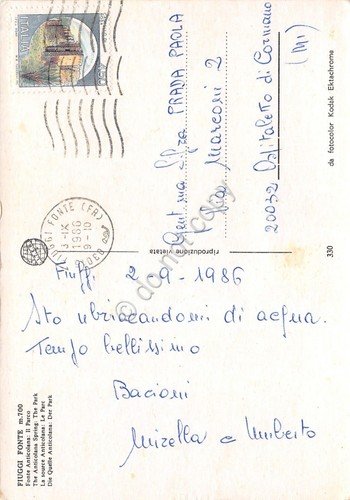 ITALIA
FIUGGI FONTE (FR)
3-IX
1986
9-10
Gent.ma Sig.ra PRADA PAOLA
Via Marconi 2
20032 Ospitaletto di Cormano
(MI)
riproduzione vietata
da fotocolor Kodak Ektachrome
330
Fiuggi 2-9-1986
Sto ubriacandomi di acqua.
Tempo bellissimo
Bacioni
Mirella e Umberto
FIUGGI FONTE m. 700
Fonte Anticolana: Il Parco
The Anticolana Spring: The Park
La source Anticolana: Le Parc
Die Quelle Anticolana: Der Park